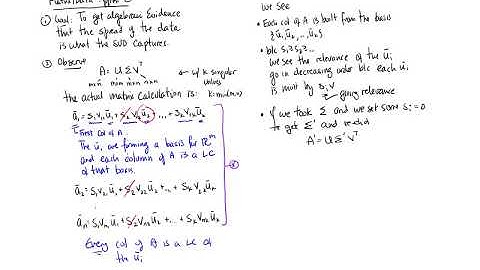 ① Goal: To get algebraic evidence
that the spread of the data
is what the SVD captures.
② Observe
A = U Σ Vᵀ ← w/ k singular
values
m×n m×m m×n n×n
the actual matrix calculation is: k=min(m,n)
ā₁ = s₁v₁₁ū₁ + s₂v₁₂ū₂ + ... + sₖv₁ₖūₖ
First col of A.
The ūᵢ are forming a basis for ℝᵐ
and each column of A is a LC
of that basis.
ā₂ = s₁v₂₁ū₁ + s₂v₂₂ū₂ + ... + sₖv₂ₖūₖ
āₙ = s₁vₙ₁ū₁ + s₂vₙ₂ū₂ + ... + sₖvₙₖūₖ
Every col of A is a LC of
the ūᵢ
we see
• Each col of A is built from the basis
{ū₁, ū₂, ... ūₖ}
• b/c s₁ ≥ s₂ ≥ ...
we see the relevance of the ūᵢ
go in decreasing order b/c each ūᵢ
is mult by sᵢv
giving relevance
• If we took Σ and set some sᵢ = 0
to get Σ' and re-did
A' = U Σ' Vᵀ